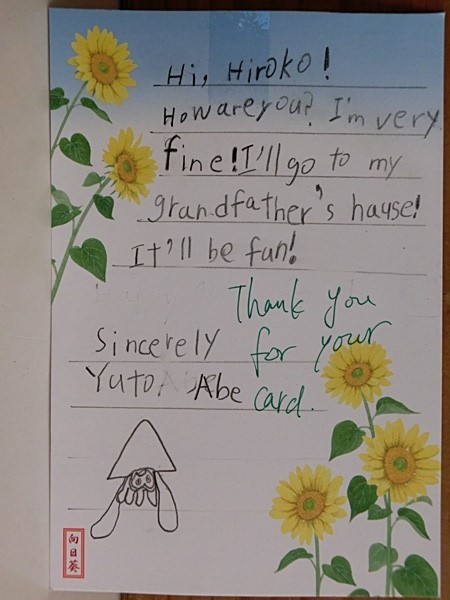 Hi, Hiroko!
How are you? I'm very
fine! I'll go to my
grandfather's hause!
It'll be fun!
Thank you
for your
card.
Sincerely
Yuto. Abe
向日葵